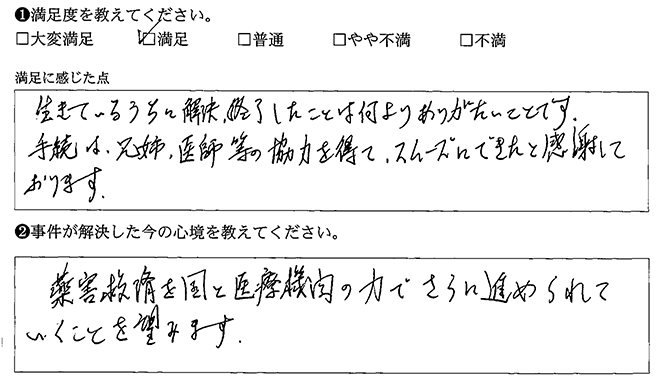 ❶満足度を教えてください。
□大変満足 ☑満足 □普通 □やや不満 □不満
満足に感じた点
生きているうちに解決、終了したことは何よりありがたいことです。
手続は、兄姉、医師等の協力を得て、スムーズにできたと感謝して
おります。
❷事件が解決した今の心境を教えてください。
薬害救済を国と医療機関の力でさらに進められて
いくことを望みます。